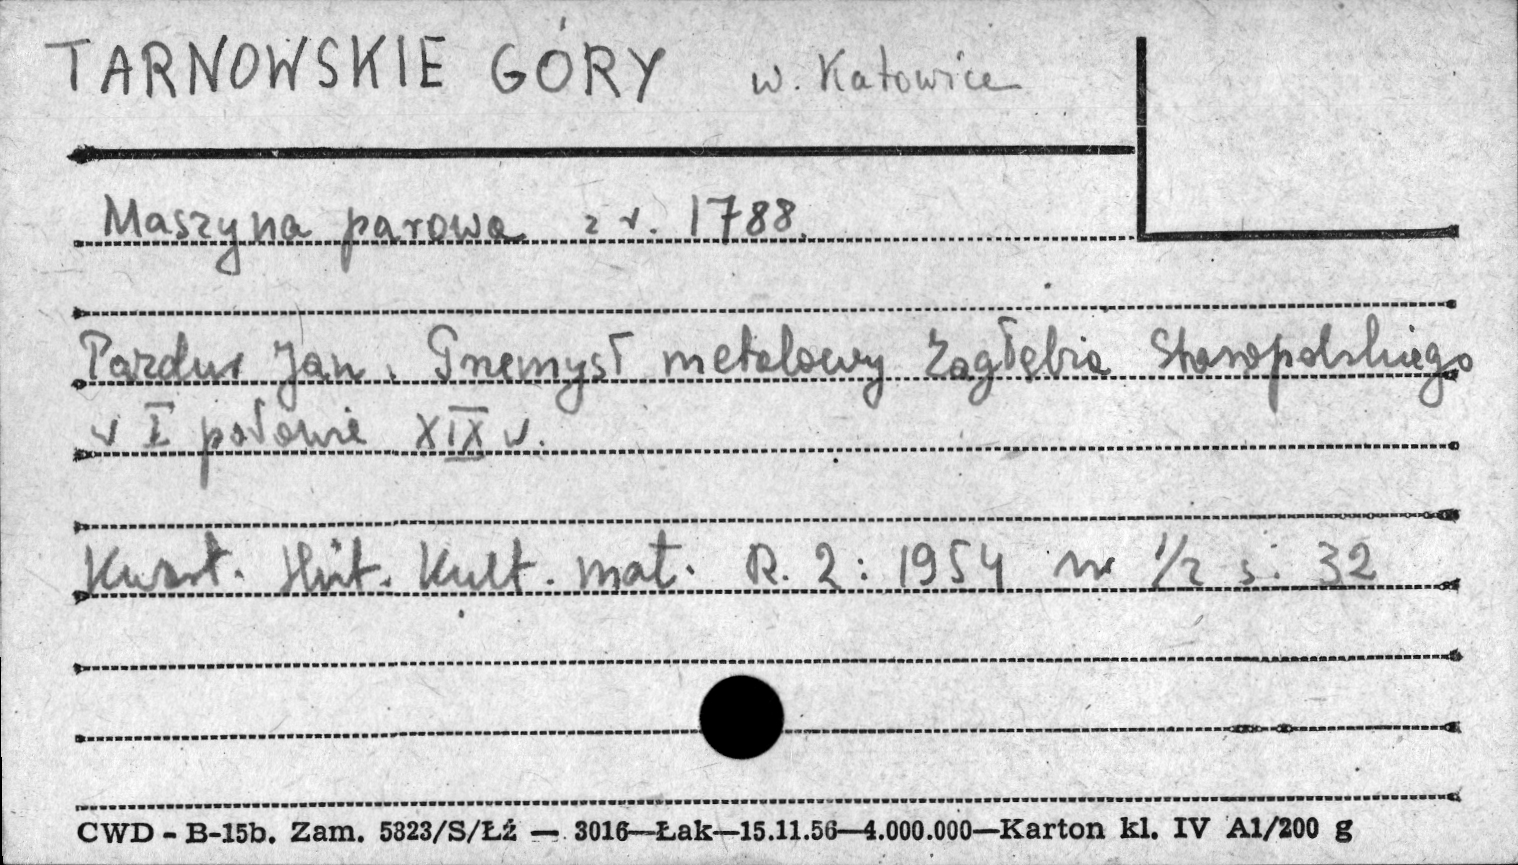 TARNOWSKIE GÓRY w. Katowice
Maszyna parowa z r. 1788.
Pazdur Jan. Przemysł metalowy Zagłębia Staropolskiego
w I połowie XIX w.
Kwart. Hist. Kult. mat. R. 2: 1954 nr 1/2 s. 32
CWD - B-15b. Zam. 5823/S/Łź — 3016—Łak—15.11.56—4.000.000—Karton kl. IV A1/200 g